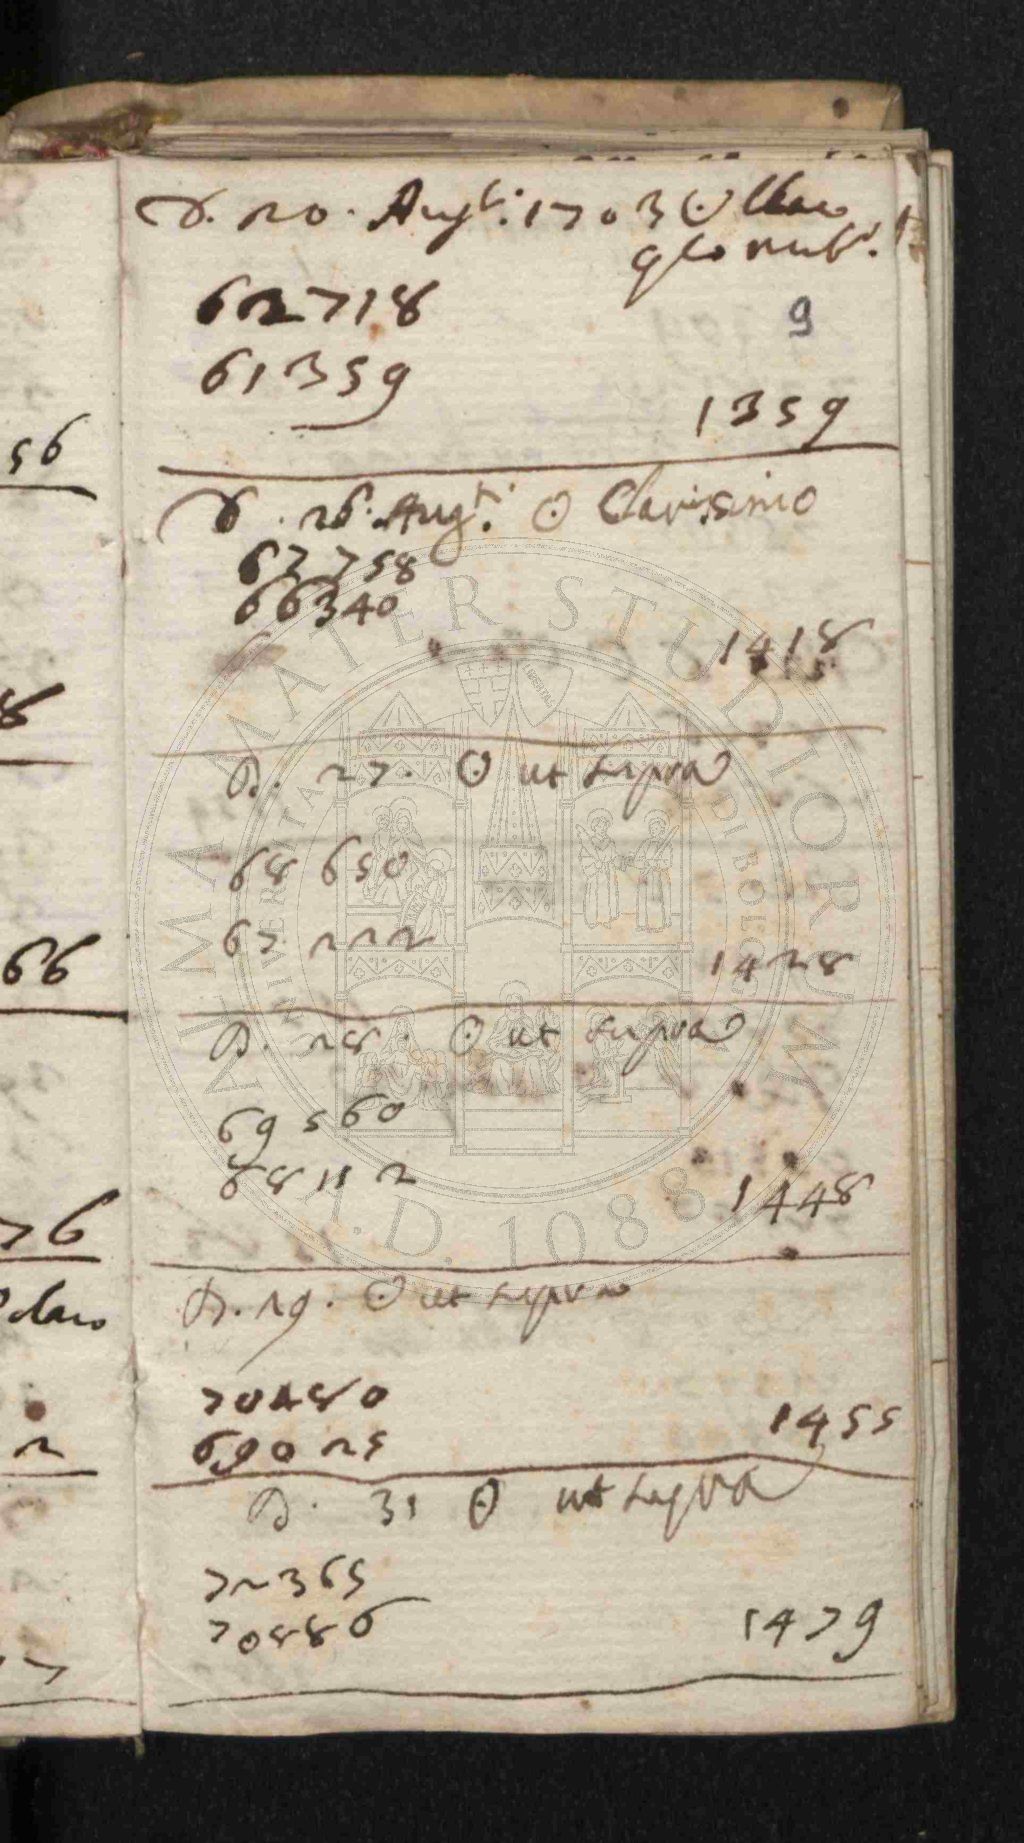 D. 20. Augti. 1703 ☉ claro
62718
9
61359
1359
D. 26. Augti. ☉ Clarissimo
67758
66340
1418
D. 27. ☉ ut supra
68650
67222
1428
D. 28. ☉ ut supra
69560
68112
1448
D. 29. ☉ ut supra
70480
69025
1455
D. 31 ☉ ut supra
72365
70886
1479
56
8
66
76
claro
2
7
ALMA MATER STUDIORUM
A.D. 1088